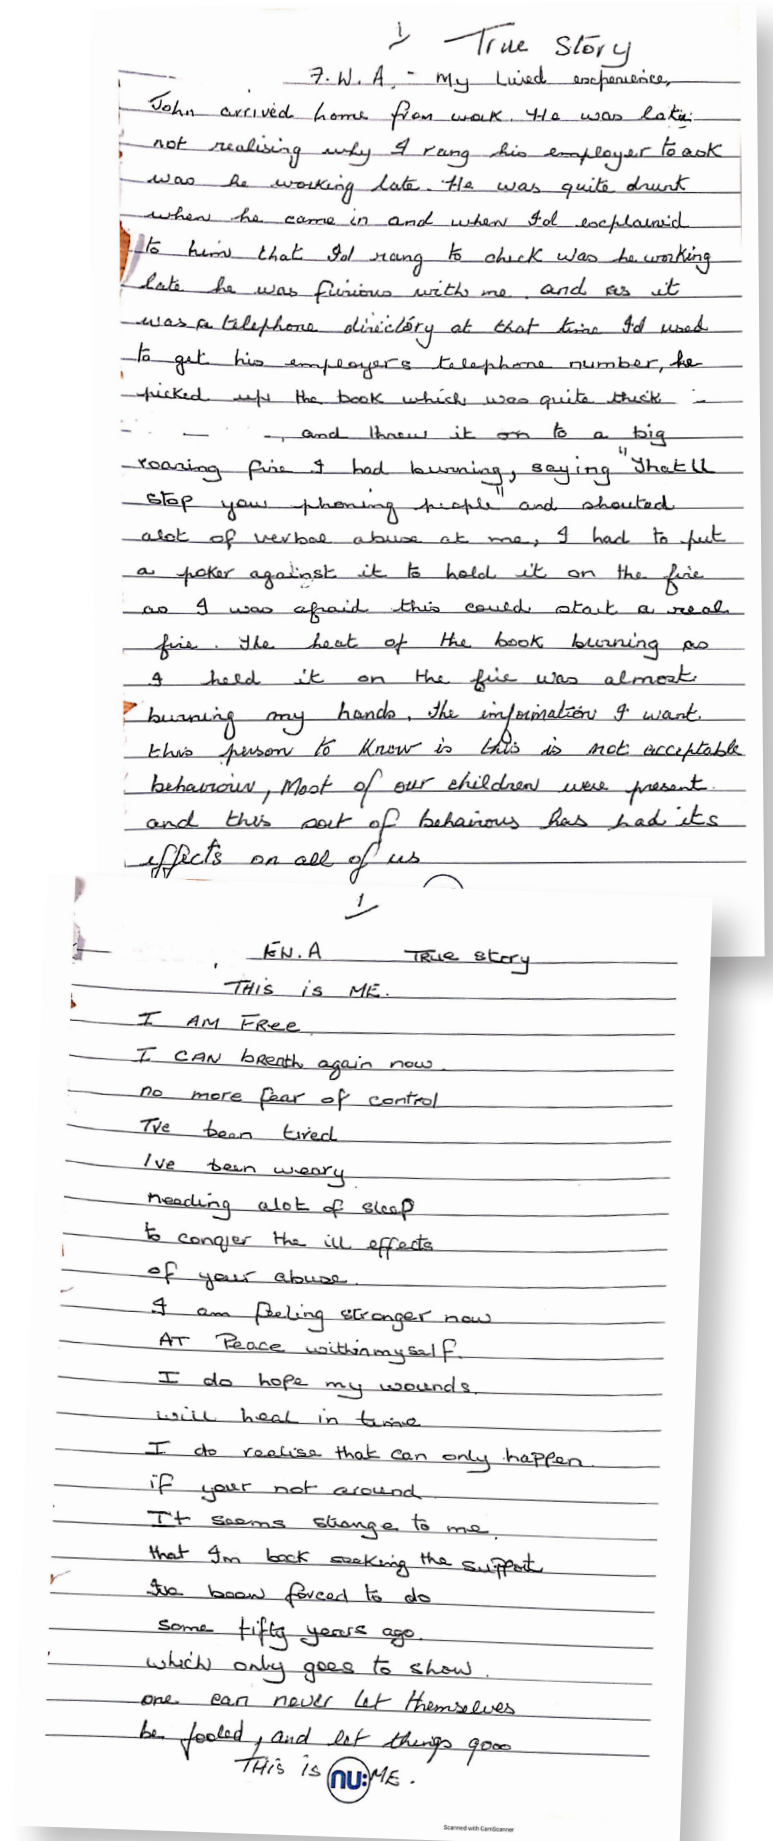 1
True Story
F.W.A. - My Lived experience,
John arrived home from work. He was late.
not realising why I rang his employer to ask
was he working late. He was quite drunk
when he came in and when I'd explained
to him that I'd rang to check was he working
late he was furious with me. and as it
was a telephone directory at that time I'd used
to get his employers telephone number, he
picked up the book which was quite thick -
, and threw it on to a big
roaring fire I had burning, saying "That'll
stop your phoning people" and shouted
alot of verbal abuse at me, I had to put
a poker against it to hold it on the fire
as I was afraid this could start a real
fire. The heat of the book burning as
I held it on the fire was almost
burning my hands. The information I want.
this person to know is this is not acceptable
behaviour, Most of our children were present.
and this sort of behaviour has had its
effects on all of us
1
True story
THIS is ME.
I AM FRee
I CAN breath again now.
no more fear of control
I've been tired
I've been weary
needing alot of sleep
to conqer the ill effects
of your abuse.
I am feeling stronger now
AT Peace within myself.
I do hope my wounds.
will heal in time
I do realise that can only happen.
if your not around
It seems strange to me.
that I'm back seeking the support
I've been forced to do
some fifty years ago.
which only goes to show.
one can never let themselves
be fooled, and let things goo
THIS is ME.
nu:
Scanned with CamScanner